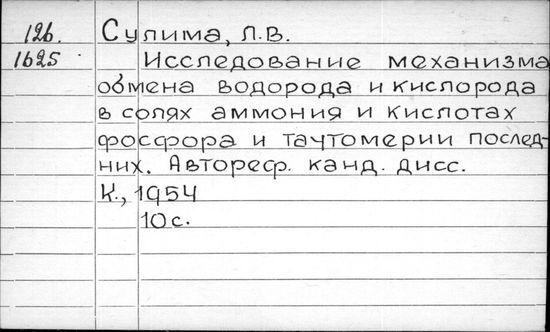 126. Сулима, Л.В.
1625 Исследование механизма
обмена водорода и кислорода
в солях аммония и кислотах
фосфора и таутомерии послед-
них. Автореф. канд. дисс.
К., 1954
10 с.